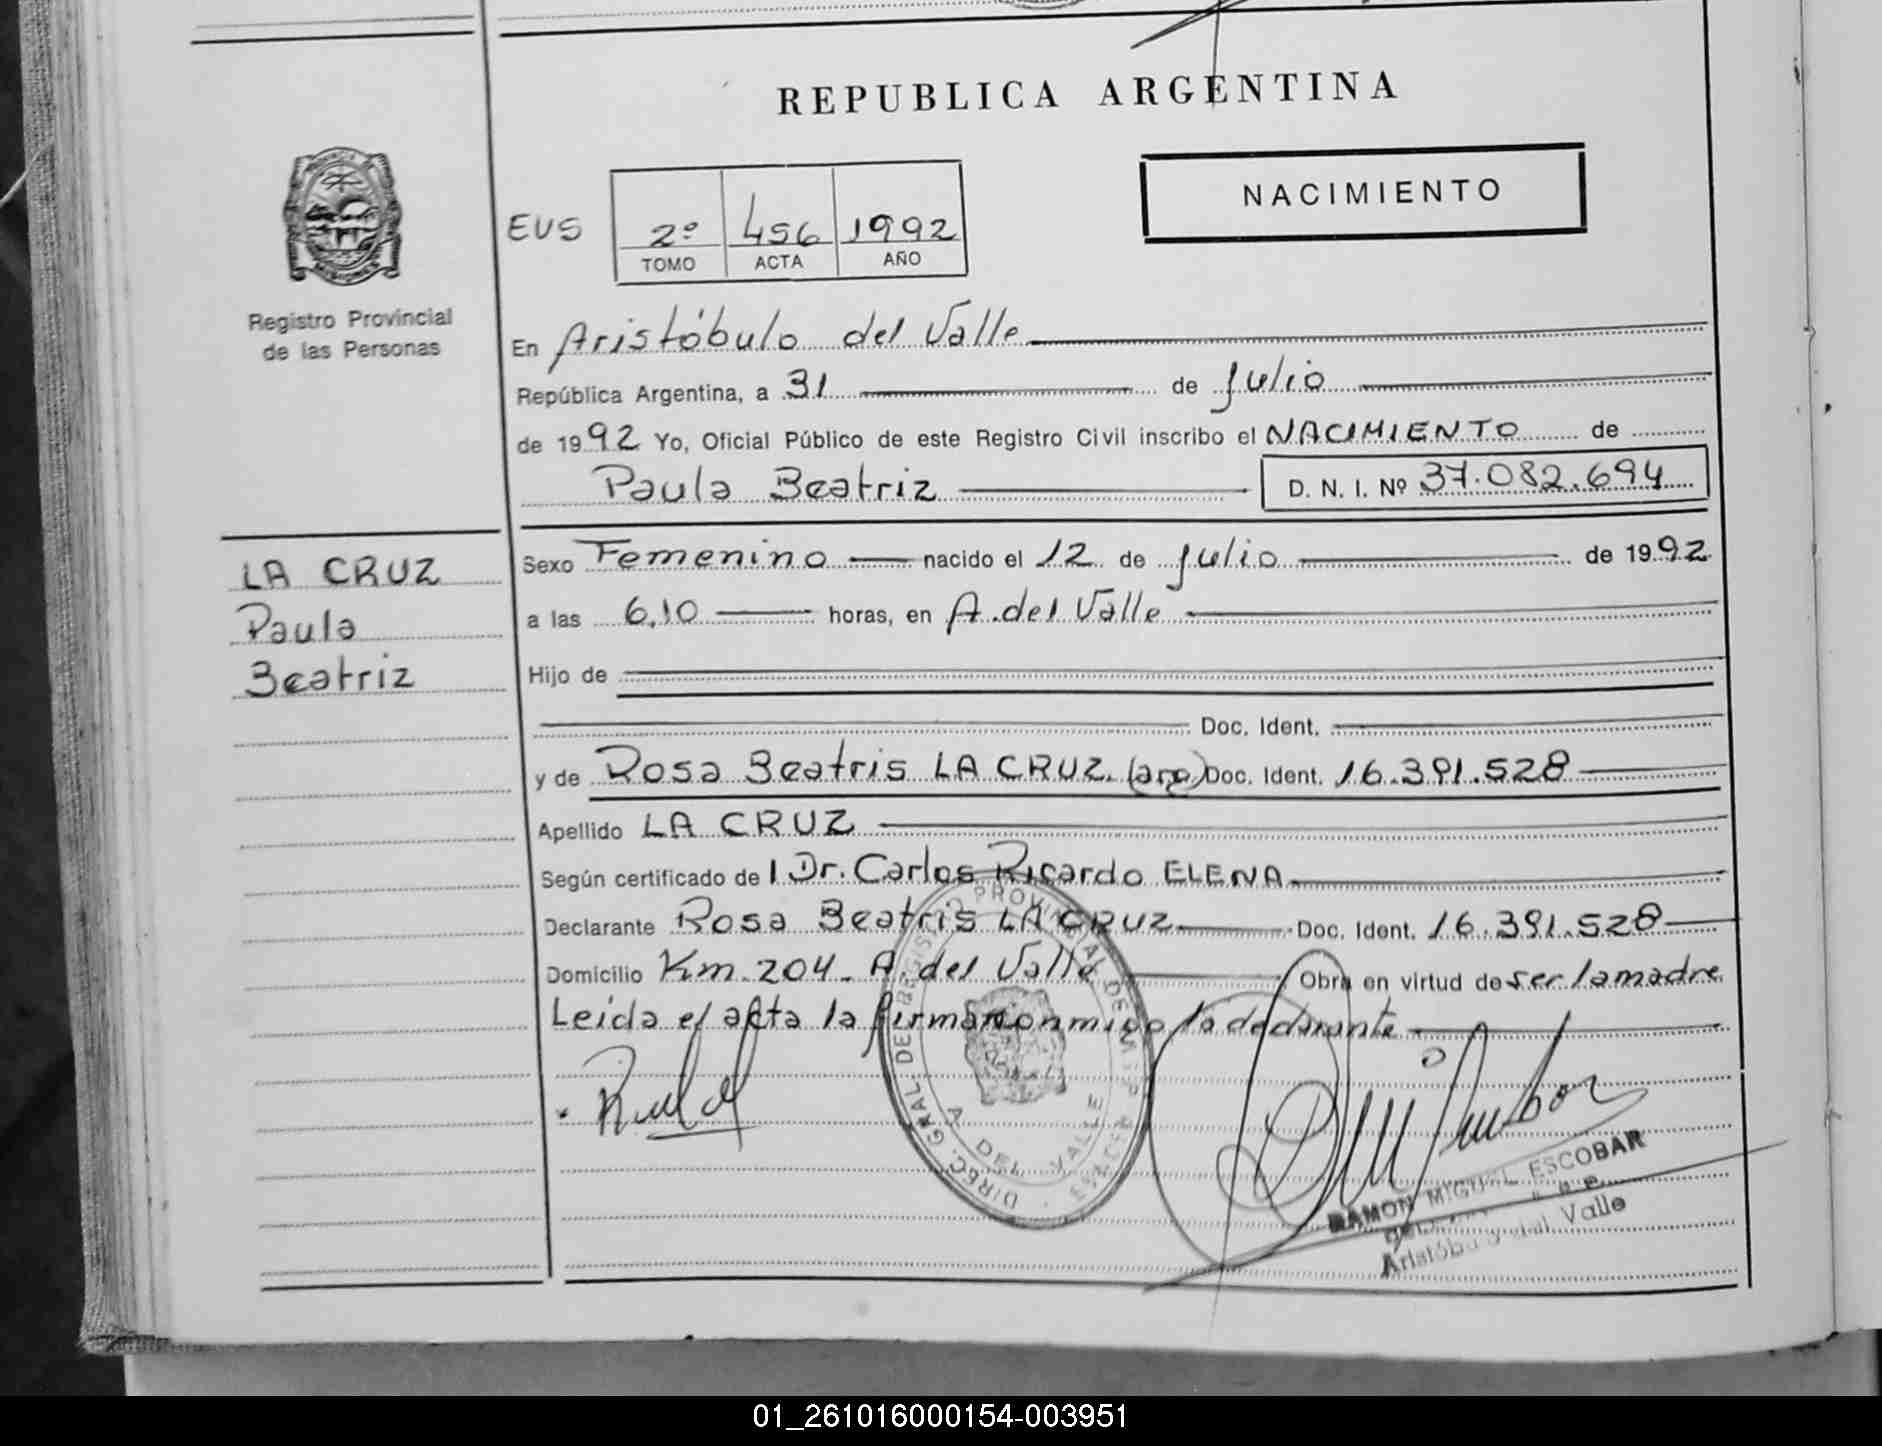 REPUBLICA ARGENTINA
NACIMIENTO
EUS 2º 456 1992
TOMO ACTA AÑO
Registro Provincial
de las Personas
En Aristóbulo del Valle
República Argentina, a 31 de Julio
de 1992 Yo, Oficial Público de este Registro Civil inscribo el NACIMIENTO de
Paula Beatriz D. N. I. Nº 37.082.694
LA CRUZ
Paula
Beatriz
Sexo Femenino nacido el 12 de Julio de 1992
a las 6,10 horas, en A. del Valle
Hijo de
Doc. Ident.
y de Rosa Beatris LA CRUZ (arg) Doc. Ident. 16.391.528
Apellido LA CRUZ
Según certificado de l Dr. Carlos Ricardo ELENA
Declarante Rosa Beatris LA CRUZ Doc. Ident. 16.391.528
Domicilio Km 204 - A. del Valle Obra en virtud de ser la madre
Leida el acta la firma conmigo la declarante
DIREC. GRAL. DE REGISTRO PROVINCIAL DE
A. DEL VALLE
RAMON MIGUEL ESCOBAR
Valle
01_261016000154-003951